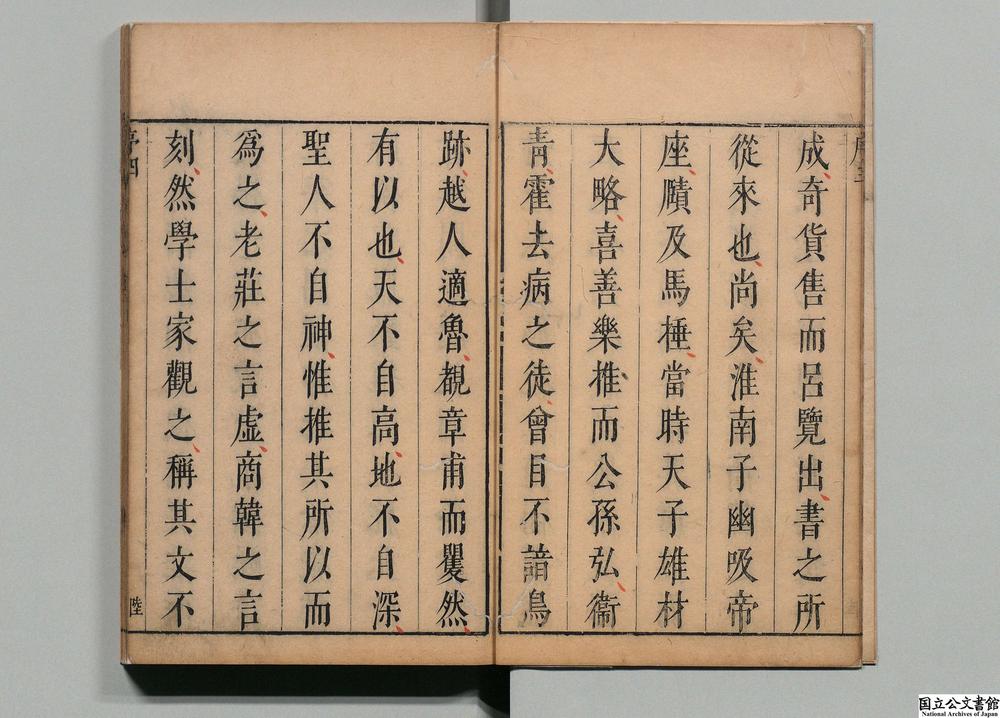 序三
成奇貨售而呂覽出書之所
從來也尚矣淮南子幽吸帝
座賾及馬棰當時天子雄材
大略喜善樂推而公孫弘衞
青霍去病之徒曾目不諳鳥
跡越人適魯覩章甫而矍然
有以也天不自高地不自深
聖人不自神惟推其所以而
為之老莊之言虛商韓之言
刻然學士家觀之稱其文不
序四
陸
国立公文書館
National Archives of Japan